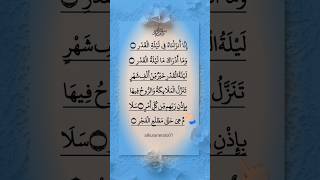 إِنَّا أَنزَلْنَاهُ فِي لَيْلَةِ الْقَدْرِ
وَمَا أَدْرَاكَ مَا لَيْلَةُ الْقَدْرِ
لَيْلَةُ الْقَدْرِ خَيْرٌ مِّنْ أَلْفِ شَهْرٍ
تَنَزَّلُ الْمَلَائِكَةُ وَالرُّوحُ فِيهَا
بِإِذْنِ رَبِّهِم مِّن كُلِّ أَمْرٍ سَلَا
مٌ هِيَ حَتَّىٰ مَطْلَعِ الْفَجْرِ